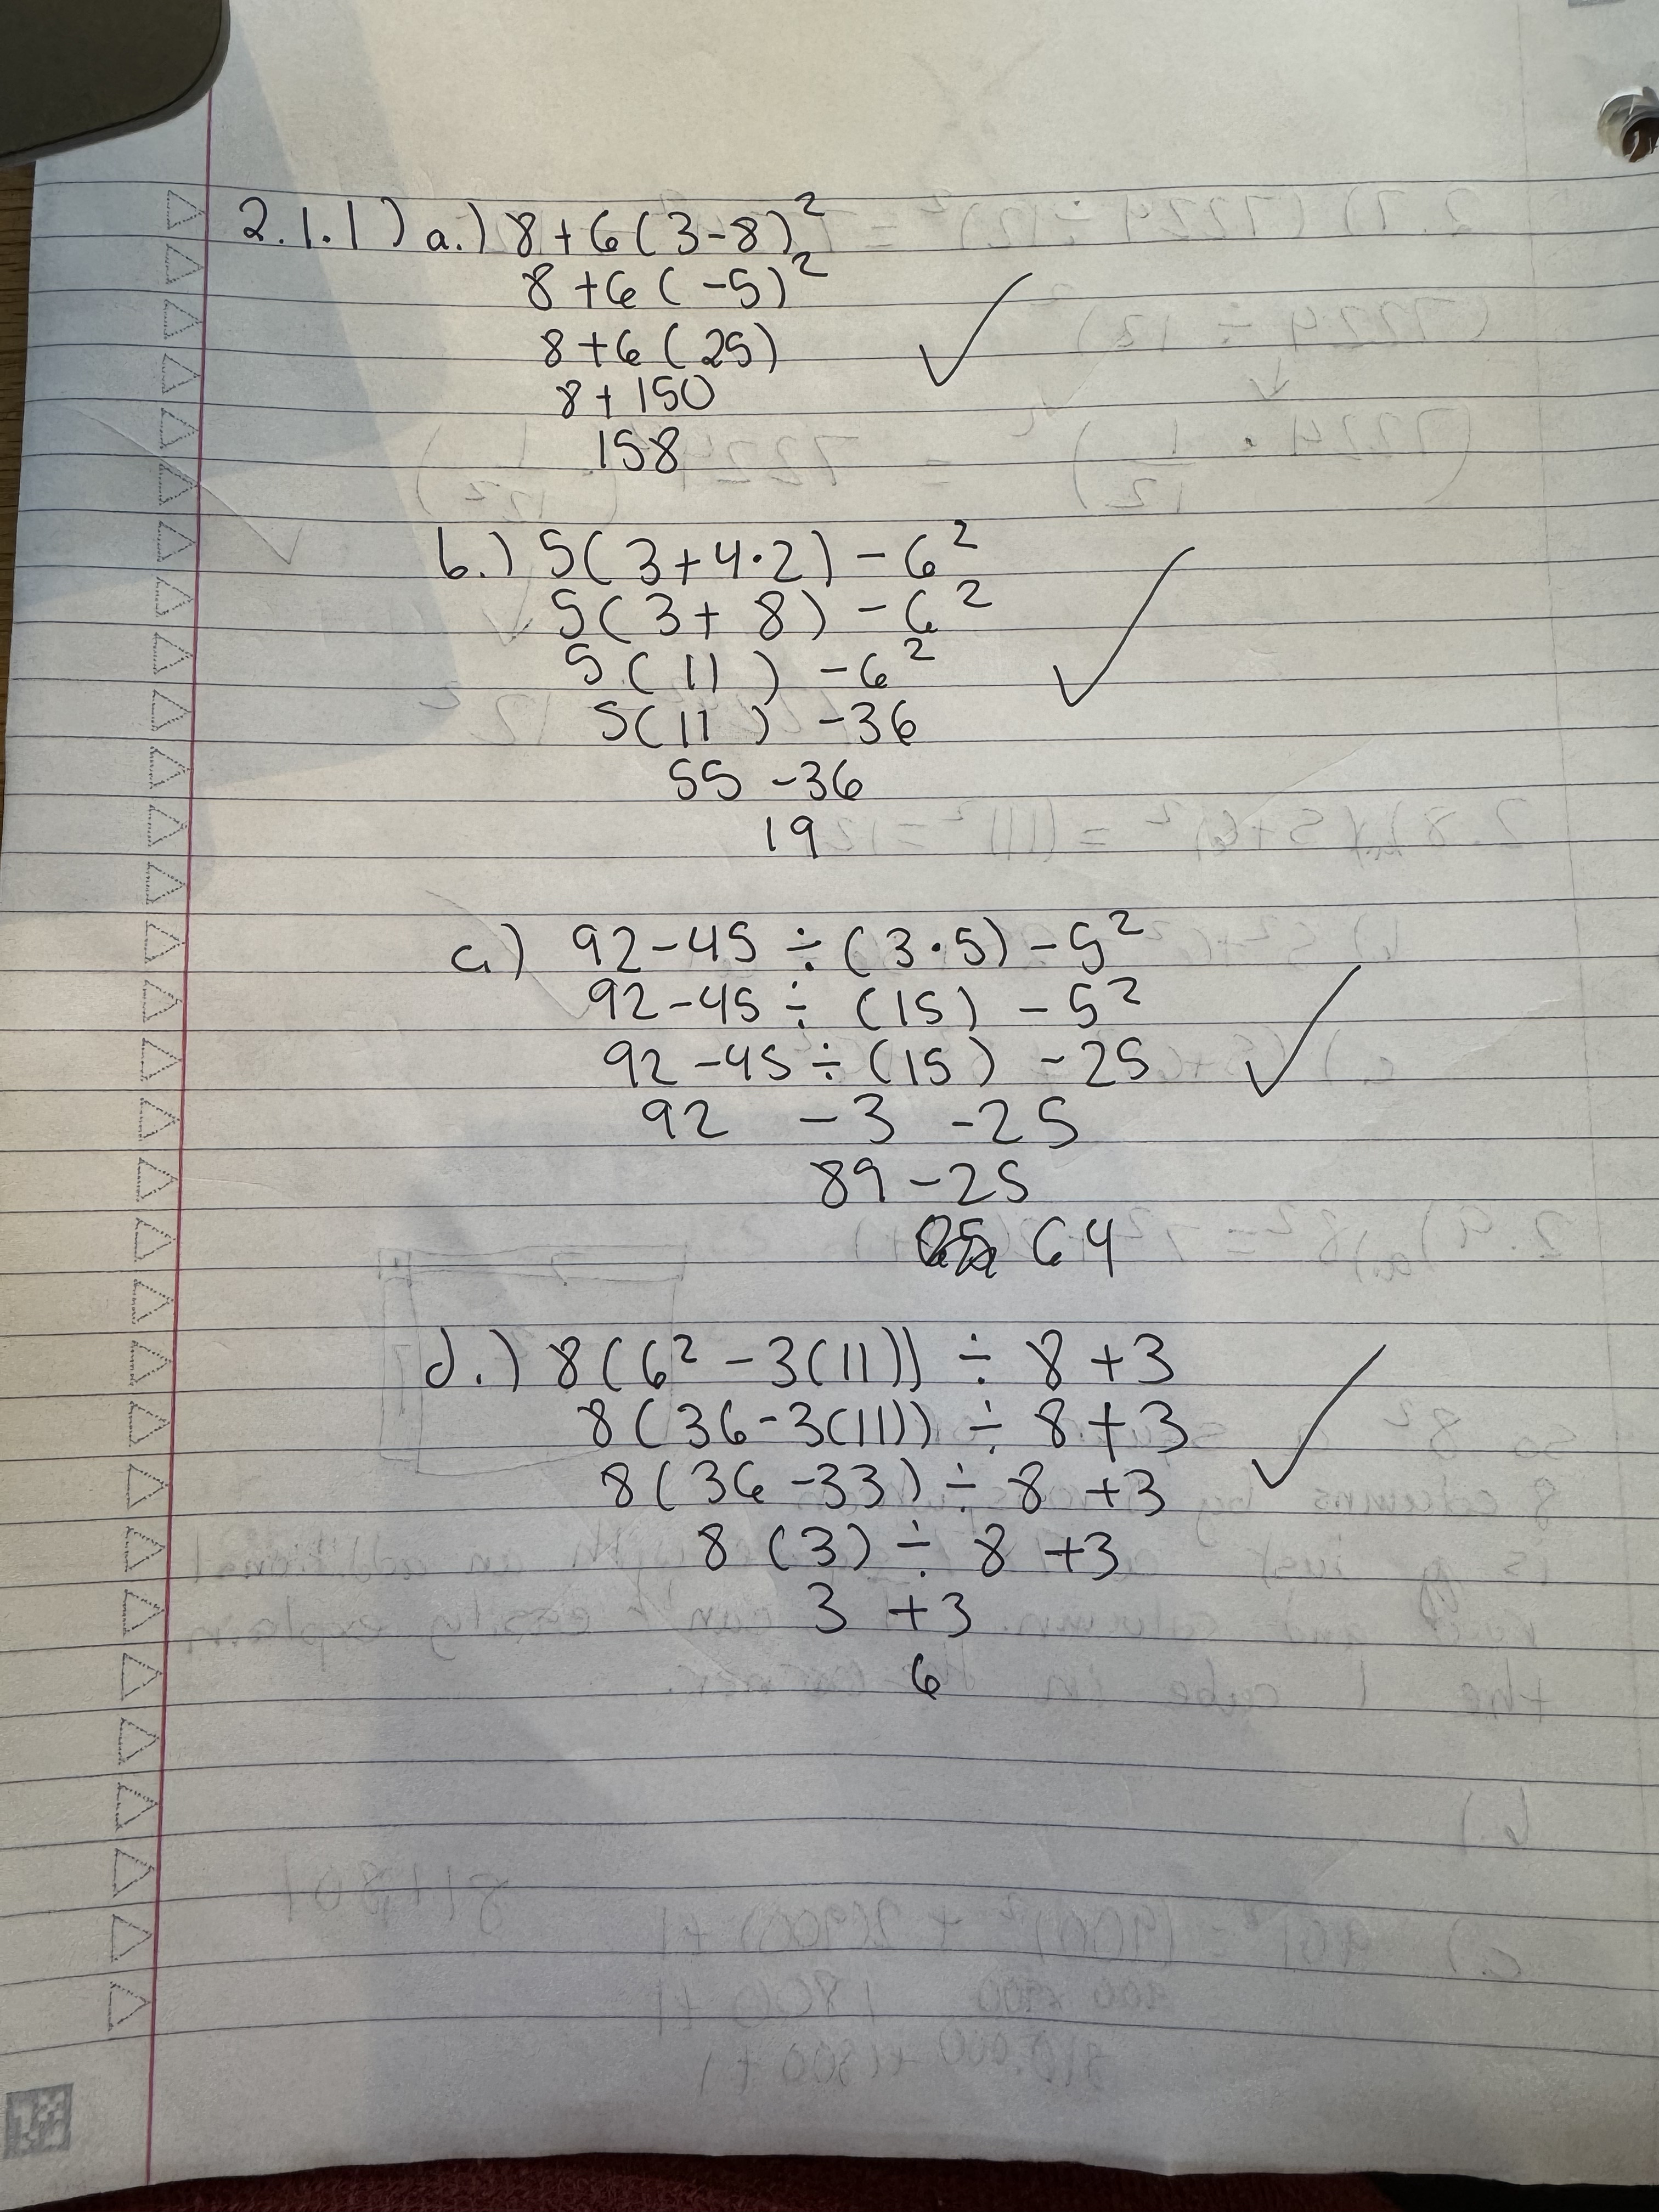 2.1.1) a.) 8+6(3-8)²
8+6(-5)²
8+6(25)
8+150
158
b.) 5(3+4·2)-6²
5(3+8)-6²
5(11)-6²
5(11)-36
55-36
19
c.) 92-45÷(3·5)-5²
92-45÷(15)-5²
92-45÷(15)-25
92-3-25
89-25
64
d.) 8(6²-3(11))÷8+3
8(36-3(11))÷8+3
8(36-33)÷8+3
8(3)÷8+3
3+3
6